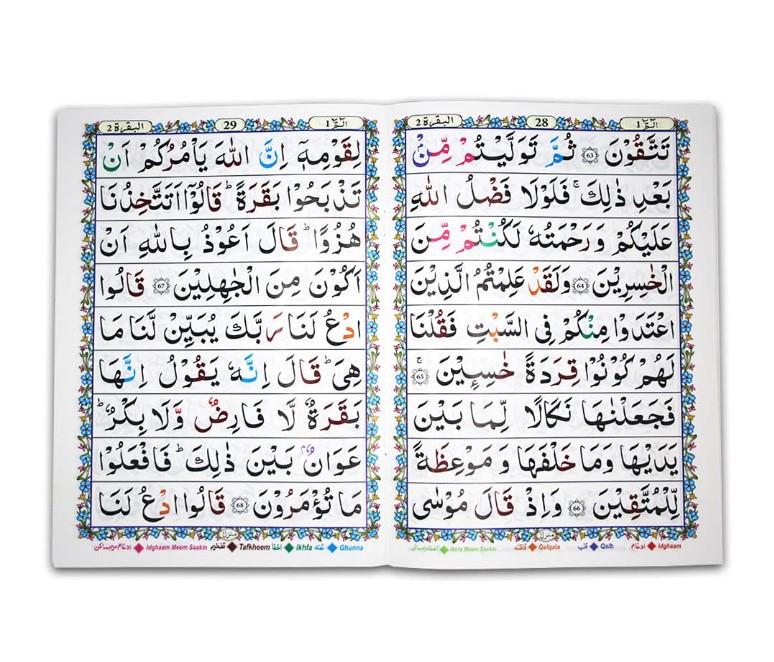 الٓمّٓ ١ 28 البقرة ٢
تَتَّقُوْنَ ﴿63﴾ ثُمَّ تَوَلَّيْتُمْ مِّنْۢ
بَعْدِ ذٰلِكَ ۚ فَلَوْلَا فَضْلُ اللّٰهِ
عَلَيْكُمْ وَرَحْمَتُهٗ لَكُنْتُمْ مِّنَ
الْخٰسِرِيْنَ ﴿64﴾ وَلَقَدْ عَلِمْتُمُ الَّذِيْنَ
اعْتَدَوْا مِنْكُمْ فِى السَّبْتِ فَقُلْنَا
لَهُمْ كُوْنُوْا قِرَدَةً خٰسِـِٕيْنَ ﴿65﴾ ۚ
فَجَعَلْنٰهَا نَكَالًا لِّمَا بَيْنَ
يَدَيْهَا وَمَا خَلْفَهَا وَ مَوْعِظَةً
لِّلْمُتَّقِيْنَ ﴿66﴾ وَاِذْ قَالَ مُوْسٰى
Idghaam ادغام Qalb قلب Qalqala قلقله Ikhfa Meem Saakin
الٓمّٓ ١ 29 البقرة ٢
لِقَوْمِهٖۤ اِنَّ اللّٰهَ يَاْمُرُكُمْ اَنْ
تَذْبَحُوْا بَقَرَةً ؕ قَالُوْۤا اَتَتَّخِذُنَا
هُزُوًا ؕ قَالَ اَعُوْذُ بِاللّٰهِ اَنْ
اَكُوْنَ مِنَ الْجٰهِلِيْنَ ﴿67﴾ قَالُوا
ادْعُ لَنَا رَبَّكَ يُبَيِّنْ لَّنَا مَا
هِىَ ؕ قَالَ اِنَّهٗ يَقُوْلُ اِنَّهَا
بَقَرَةٌ لَّا فَارِضٌ وَّلَا بِكْرٌ ؕ
عَوَانٌۢ بَيْنَ ذٰلِكَ ؕ فَافْعَلُوْا
مَا تُؤْمَرُوْنَ ﴿68﴾ قَالُوا ادْعُ لَنَا
Ghunna غنه Ikhfa اخفا Tafkheem تفخيم Idghaam Meem Saakin ادغام ميم ساكن